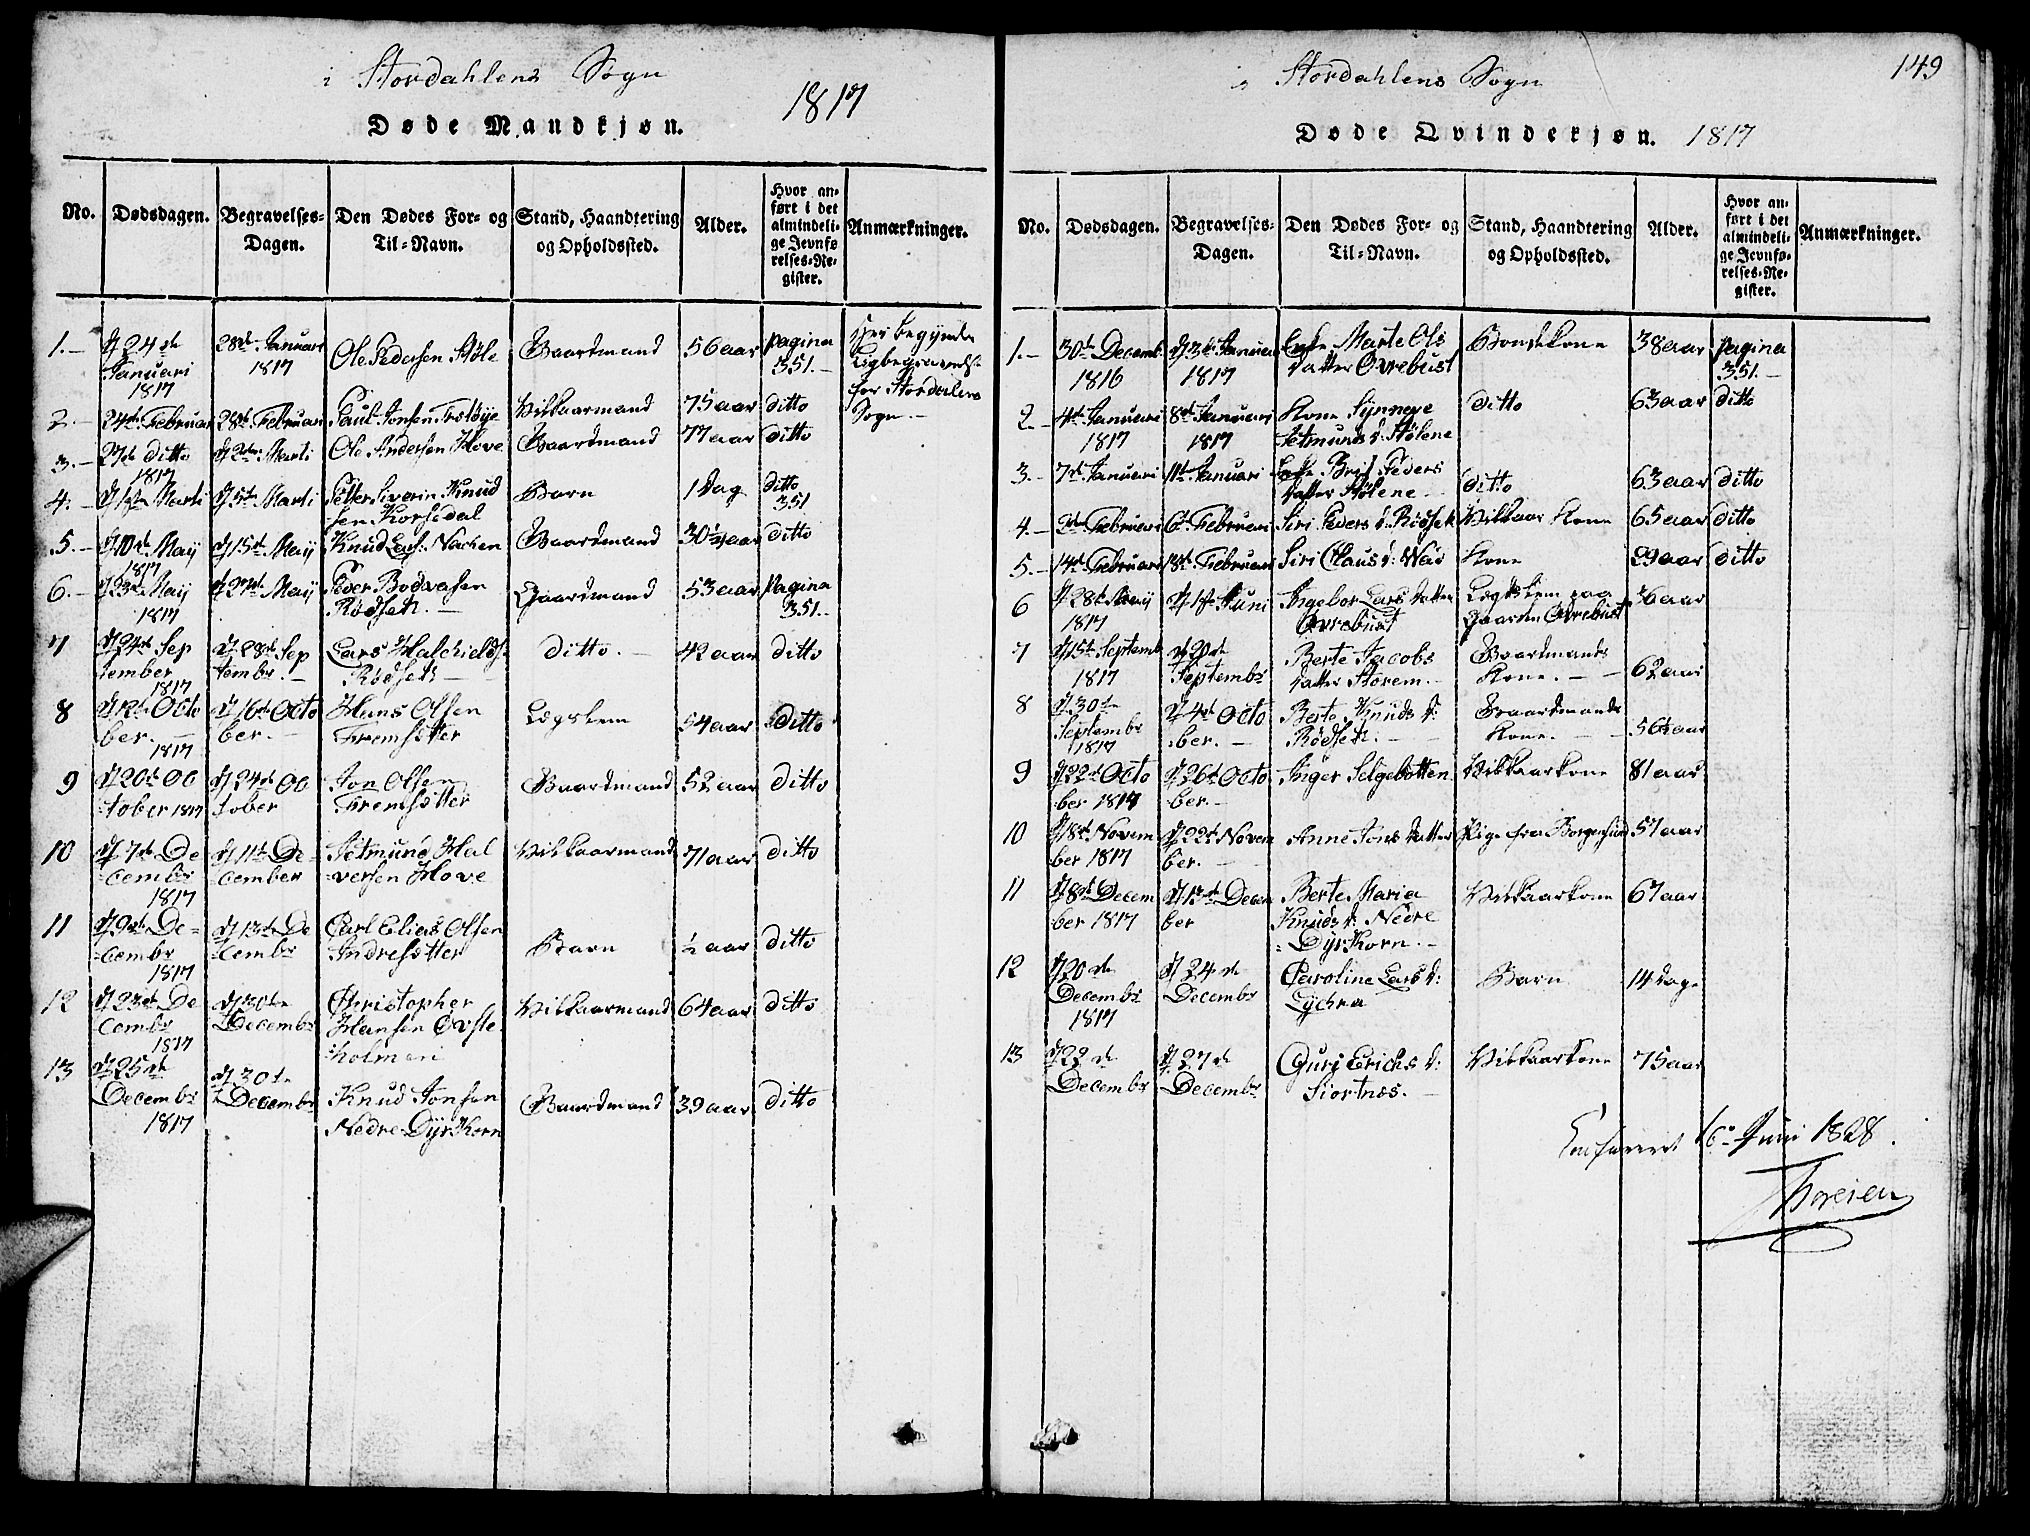 i Stordahlens Sogn
1817
Døde Mandkjøn.
No. Dødsdagen. Begravelses-Dagen. Den Dødes For- og Til-Navn. Stand, Haandtering og Opholdssted. Alder. Hvor anført i det almindelige Jevnførelses-Register. Anmærkninger.
1.- d 24de Januari 1817 28de Januari 1817 Ole Pedersen Støle Gaardmand 56 aar pagina 351.- Her begynder for Stordalens Sogn.-
2.- 24de Februar 28de Februari Paul Jonsen Vilkaarmand 75 aar ditto
3.- 27de ditto 1817 d 2den Marti Ole Andersen Hove Gaardmand 77 aar ditto
4. d 1ste Marti d 5te Marti Petter Siverin Knudsen Korsedal Barn 1 Dag ditto 351
5.- d 10de Maij 1817 d 15de Maij Knud Lars: Gaardmand ditto
6.- d 23de Maij 1817 d 27de Maij Peder Rødseth.- Gaardmand 53 aar Pagina 351.-
7 d 24de September 1817 d 28de Septembr.- Lars Rødseth ditto.- 42 aar ditto
8 d 12te October.- 1817 d 16de October.- Hans Olsen Fremsætter Lægslem 54 aar ditto
9 d 20de October 1817 d 24de October Jon Olsen Fremsætter Gaardmand 52 aar ditto
10 d 7de Decembr 1817 d 11te December Setmund Halversen Hove Vilkaarmand 71 aar ditto
11 d 9de Decembr 1817 d 13de Decembr Carl Elias Olsen Indresætter Barn ½ aar ditto
12 d 23de Decembr 1817 d 30te Decembr Christopher Hansen Øvste holmen Vilkaarmand 64 aar ditto
13 d 25de Decembr 1817 d 30te Decembr Knud Jonsen Nedre-Dyrkorn Gaardmand 39 aar ditto
i Stordahlens Sogn
149
Døde Qvindekjøn. 1817
No. Dødsdagen. Begravelses-Dagen. Den Dødes For- og Til-Navn. Stand, Haandtering og Opholdssted. Alder. Hvor anført i det almindelige Jevnførelses-Register. Anmærkninger.
1.- 30te Decemb. 1816 d 3de Januari 1817 Marte Ols datter Øvrebust Bondekone 38 aar pagina 351.-
2.- 4de Januari 1817 8de Januari 1817 Kone Synneve Setmunds d: Stølene ditto 63 aar ditto
3.- 7de Januari 11te Januari Brit Peders datter Stølene.- ditto 63 aar ditto
4.- 2den Februari 6te Februari Siri Peders d: Rødseth Vilkaar Kone 65 aar ditto
5.- 14de Februari 18de Februari Siri Claus d: Kone 29 aar ditto
6 d 28de Maij 1817 d 1ste Juni Ingebor Lars datter Øvrebust Lægdslem paa Gaarden Øvrebust aar
7 d 15de Septemb 1817 d 20de Septembr Berte Jacobs datter Storem.- Gaardmands Kone.- 62 aar
8 d 30te Septembr 1817 d 4de October.- Berte Knuds d: Rødseth.- Gaardmands Kone.- aar
9 d 22de October 1817 d 26de October.- Inger Selgebotten Vilkaarkone 81 aar
10 d 18de November 1817 d 22de November.- Anne Jons datter Pige fra Borgensund 57 aar
11 d 8de December 1817 d 13de December Berte Maria Knuds d: Nedre Dyrkorn.- Vilkaarkone 67 aar
12 d 20de Decembr 1817 d 24de Decembr Caroline Lars d: Barn 14 dage
13 d 22de Decembr d 27de Decembr Guri Erichs d: Siortnes.- Vilkaarkone 75 aar
6te Juni 1828.